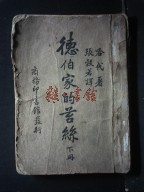 哈代著
張穀若譯
德伯家的苔絲 下冊
商務印書館